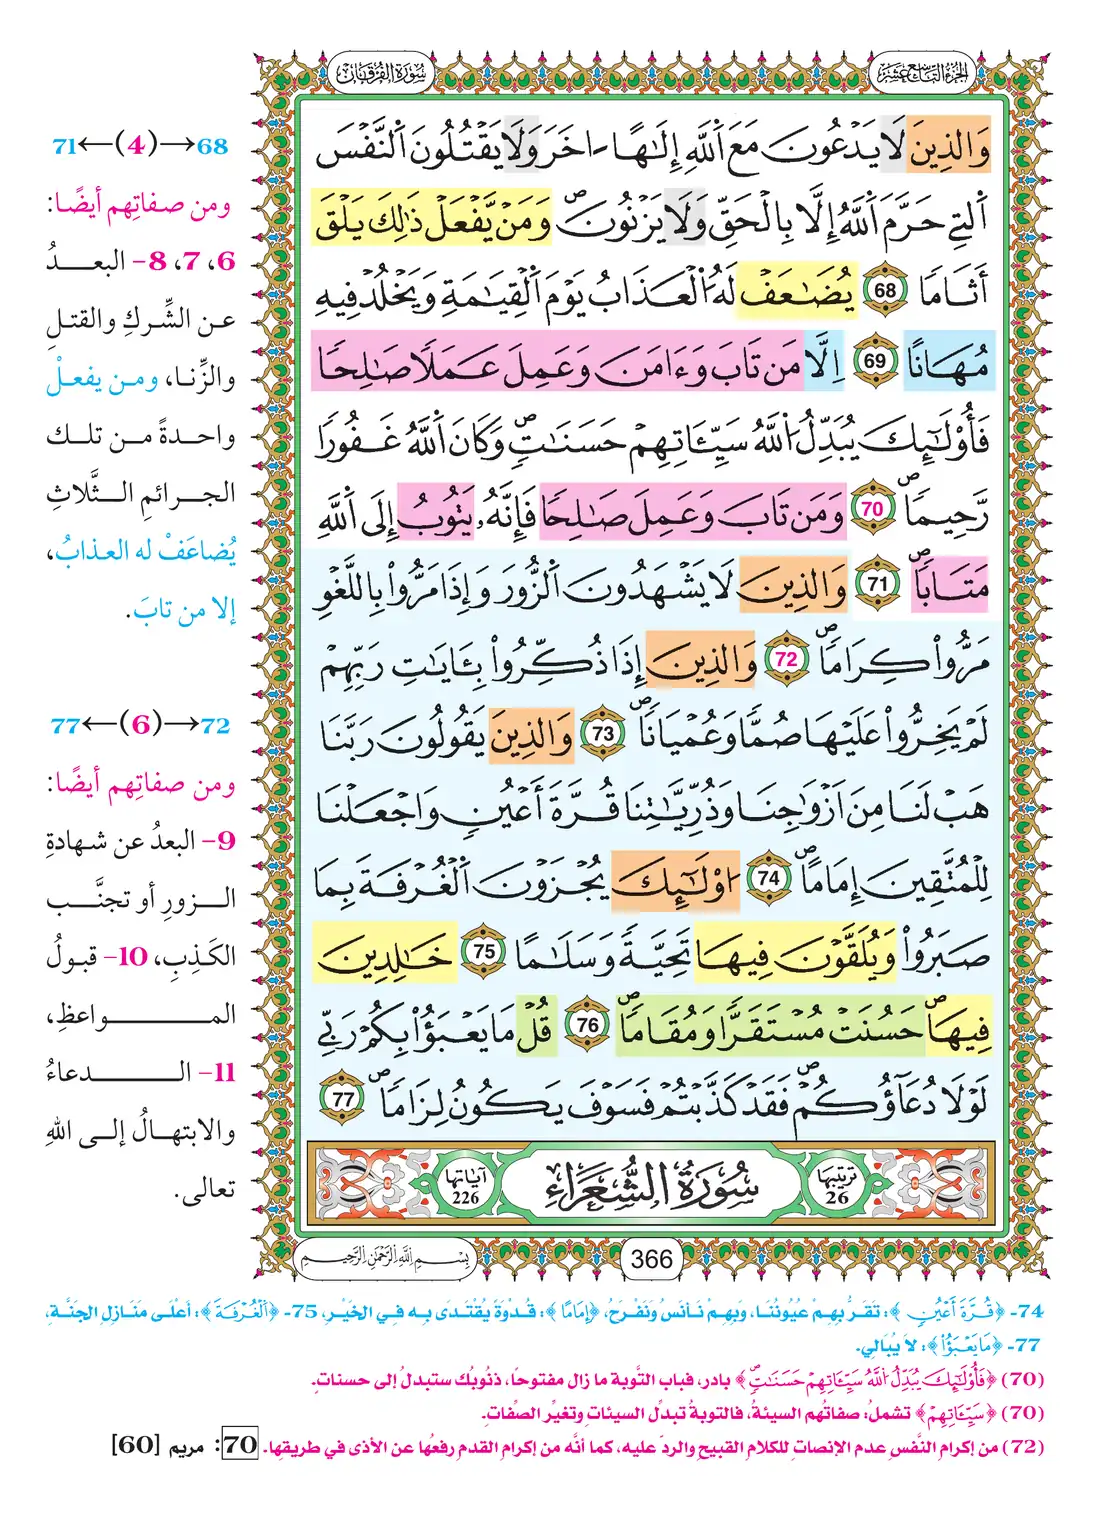 الجزء التاسع عشر
سورة الفرقان
وَالذِينَ لَا يَدْعُونَ مَعَ اَ۬للَّهِ إِلَٰهاً ـاخَرَ وَلَا يَقْتُلُونَ اَ۬لنَّفْسَ
اَ۬لتِے حَرَّمَ اَ۬للَّهُ إِلَّا بِالْحَقِّ وَلَا يَزْنُونَۖ وَمَنْ يَّفْعَلْ ذَٰلِكَ يَلْقَ
أَثَاماٗ 68 يُضَٰعَفْ لَهُ اُ۬لْعَذَابُ يَوْمَ اَ۬لْقِيَٰمَةِ وَيَخْلُدْ فِيهِ
مُهَاناً 69 اِلَّا مَن تَابَ وَءَامَنَ وَعَمِلَ عَمَلاٗ صَٰلِحاٗ
فَأُوْلَٰٓئِكَ يُبَدِّلُ اُ۬للَّهُ سَيِّـَٔاتِهِمْ حَسَنَٰتٖۖ وَكَانَ اَ۬للَّهُ غَفُوراٗ
رَّحِيماٗۖ 70 وَمَن تَابَ وَعَمِلَ صَٰلِحاٗ فَإِنَّهُۥ يَتُوبُ إِلَى اَ۬للَّهِ
مَتَاباٗۖ 71 وَالذِينَ لَا يَشْهَدُونَ اَ۬لزُّورَ وَإِذَا مَرُّواْ بِاللَّغْوِ
مَرُّواْ كِرَاماٗۖ 72 وَالذِينَ إِذَا ذُكِّرُواْ بِـَٔايَٰتِ رَبِّهِمْ
لَمْ يَخِرُّواْ عَلَيْهَا صُمّاٗ وَعُمْيَاناٗۖ 73 وَالذِينَ يَقُولُونَ رَبَّنَا
هَبْ لَنَا مِنَ اَزْوَٰجِنَا وَذُرِّيَّٰتِنَا قُرَّةَ أَعْيُنٖ وَاجْعَلْنَا
لِلْمُتَّقِينَ إِمَاماًۖ 74 اوْلَٰٓئِكَ يُجْزَوْنَ اَ۬لْغُرْفَةَ بِمَا
صَبَرُواْ وَيُلَقَّوْنَ فِيهَا تَحِيَّةٗ وَسَلَٰماً 75 خَٰلِدِينَ
فِيهَاۖ حَسُنَتْ مُسْتَقَرّاٗ وَمُقَاماٗۖ 76 قُلْ مَا يَعْبَؤُاْ بِكُمْ رَبِّے
لَوْلَا دُعَآؤُكُمْۖ فَقَدْ كَذَّبْتُمْ فَسَوْفَ يَكُونُ لِزَاماٗۖ 77
ترتيبها 26
سورة الشعراء
آياتها 226
بسم الله الرحمن الرحيم
366
68→(4)←71
ومن صفاتِهم أيضًا:
6، 7، 8- البعدُ
عن الشِّركِ والقتلِ
والزِّنا، ومن يفعلْ
واحدةً من تلك
الجرائمِ الثَّلاثِ
يُضاعَفْ له العذابُ،
إلا من تابَ.
72→(6)←77
ومن صفاتِهم أيضًا:
9- البعدُ عن شهادةِ
الزورِ أو تجنَّب
الكَذِبِ، 10- قبولُ
المواعظِ،
11- الدعاءُ
والابتهالُ إلى اللهِ
تعالى.
74- ﴿قُرَّةَ أَعْيُنٖ﴾: تَقَرُّ بِهِمْ عُيُونُنَا، وَبِهِمْ نَأْنَسُ وَنَفْرَحُ، ﴿إِمَاماً﴾: قُدْوَةً يُقْتَدَى بِهِ فِي الخَيْرِ، 75- ﴿اَ۬لْغُرْفَةَ﴾: أَعْلَى مَنَازِلِ الجَنَّةِ،
77- ﴿مَا يَعْبَؤُاْ﴾: لاَ يُبَالِي.
(70) ﴿فَأُوْلَٰٓئِكَ يُبَدِّلُ اُ۬للَّهُ سَيِّـَٔاتِهِمْ حَسَنَٰتٖۖ﴾ بادر، فباب التَّوبة ما زال مفتوحا، ذنُوبكَ ستبدلُ إلى حسنات.
(70) ﴿سَيِّـَٔاتِهِمْ﴾ تشملُ: صفاتُهم السيئة، فالتوبةُ تبدِّل السيئات وتغيِّر الصِّفات.
(72) من إكرام النَّفسِ عدم الإنصاتِ للكلام القبيحِ والردّ عليه، كما أنَّه من إكرام القدم رفعُها عن الأذى في طريقها. 70: مريم [60]